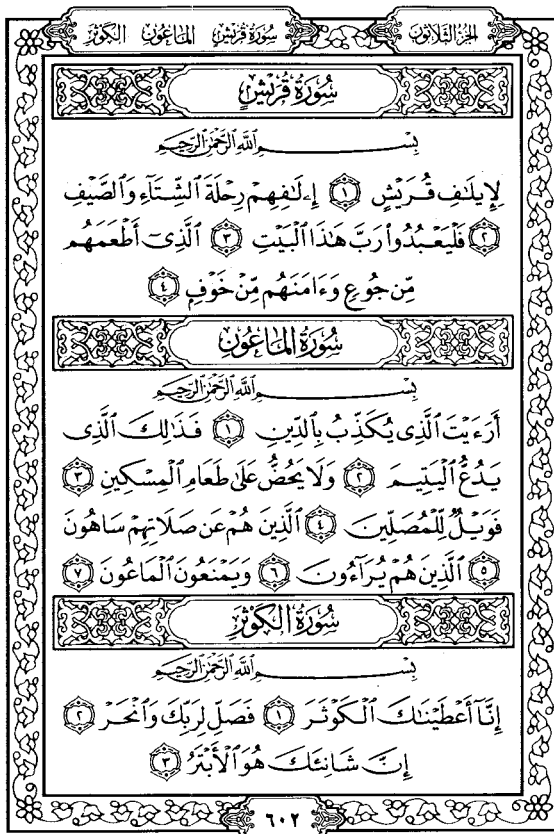 الجزء الثلاثون سورة قريش الماعون الكوثر
سُورَةُ قُرَيْشٍ
بِسْمِ ٱللَّهِ ٱلرَّحْمَٰنِ ٱلرَّحِيمِ
لِإِيلَٰفِ قُرَيْشٍ ١ إِۦلَٰفِهِمْ رِحْلَةَ ٱلشِّتَآءِ وَٱلصَّيْفِ
٢ فَلْيَعْبُدُوا۟ رَبَّ هَٰذَا ٱلْبَيْتِ ٣ ٱلَّذِىٓ أَطْعَمَهُم
مِّن جُوعٍ وَءَامَنَهُم مِّنْ خَوْفٍۭ ٤
سُورَةُ المَاعُونِ
بِسْمِ ٱللَّهِ ٱلرَّحْمَٰنِ ٱلرَّحِيمِ
أَرَءَيْتَ ٱلَّذِى يُكَذِّبُ بِٱلدِّينِ ١ فَذَٰلِكَ ٱلَّذِى
يَدُعُّ ٱلْيَتِيمَ ٢ وَلَا يَحُضُّ عَلَىٰ طَعَامِ ٱلْمِسْكِينِ ٣
فَوَيْلٌ لِّلْمُصَلِّينَ ٤ ٱلَّذِينَ هُمْ عَن صَلَاتِهِمْ سَاهُونَ
٥ ٱلَّذِينَ هُمْ يُرَآءُونَ ٦ وَيَمْنَعُونَ ٱلْمَاعُونَ ٧
سُورَةُ الكَوْثَرِ
بِسْمِ ٱللَّهِ ٱلرَّحْمَٰنِ ٱلرَّحِيمِ
إِنَّآ أَعْطَيْنَٰكَ ٱلْكَوْثَرَ ١ فَصَلِّ لِرَبِّكَ وَٱنْحَرْ ٢
إِنَّ شَانِئَكَ هُوَ ٱلْأَبْتَرُ ٣
٦٠٢